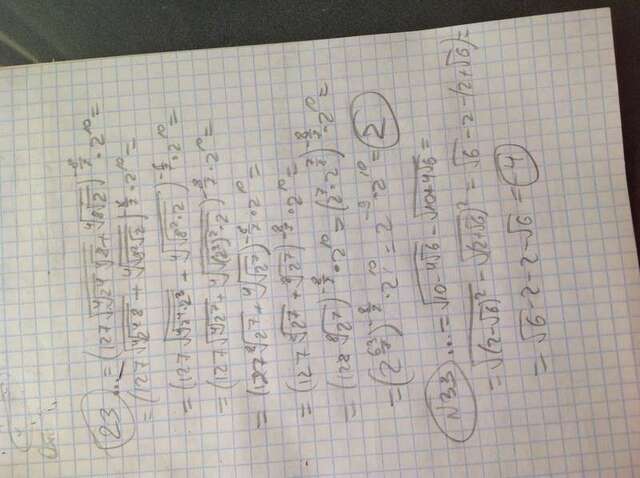 23 ... = (127√(⁴√2⁴ ⁴√8) + ⁴√(8√2))^(-8/7) · 2^10 =
= (127√(⁴√(2⁴·8)) + ⁴√(√(8²·2)))^(-8/7) · 2^10 =
= (127√(⁴√(2⁴·2³)) + ⁴√(√(8²·2)))^(-8/7) · 2^10 =
= (127√(⁴√2⁷) + ⁴√(√((2³)²·2)))^(-8/7) · 2^10 =
= (127 ⁸√2⁷ + ⁴√(√2⁷))^(-8/7) · 2^10 =
= (127 ⁸√2⁷ + ⁸√2⁷)^(-8/7) · 2^10 =
= (128 ⁸√2⁷)^(-8/7) · 2^10 = (2^7 · 2^(7/8))^(-8/7) · 2^10 =
= (2^(63/8))^(-8/7) · 2^10 = 2^(-9) · 2^10 = 2
№33 ... = √(10-4√6) - √(10+4√6) =
= √((2-√6)²) - √((2+√6)²) = √6 - 2 - (2+√6) =
= √6 - 2 - 2 - √6 = -4